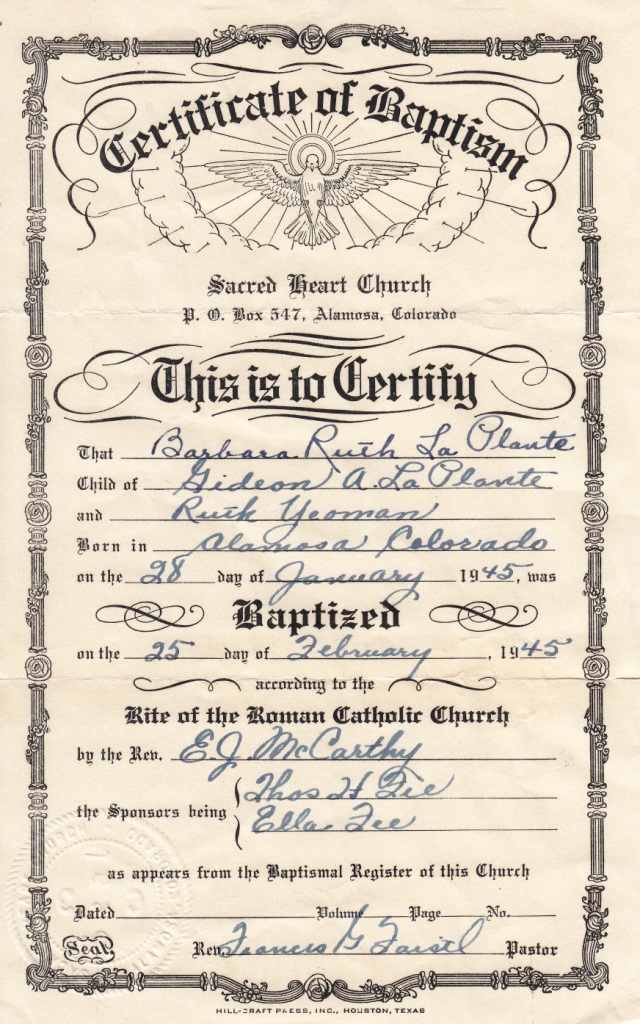 Certificate of Baptism
Sacred Heart Church
P. O. Box 547, Alamosa, Colorado
This is to Certify
That Barbara Ruth La Plante
Child of Gideon A. La Plante
and Ruth Yeoman
Born in Alamosa Colorado
on the 28 day of January 1945, was
Baptized
on the 25 day of February, 1945
according to the
Rite of the Roman Catholic Church
by the Rev. E.J. McCarthy
the Sponsors being Thos H Fie
Ella Fee
as appears from the Baptismal Register of this Church
Dated Volume Page No.
Seal Rev. Francis G. Pastor
HILL-CRAFT PRESS, INC., HOUSTON, TEXAS